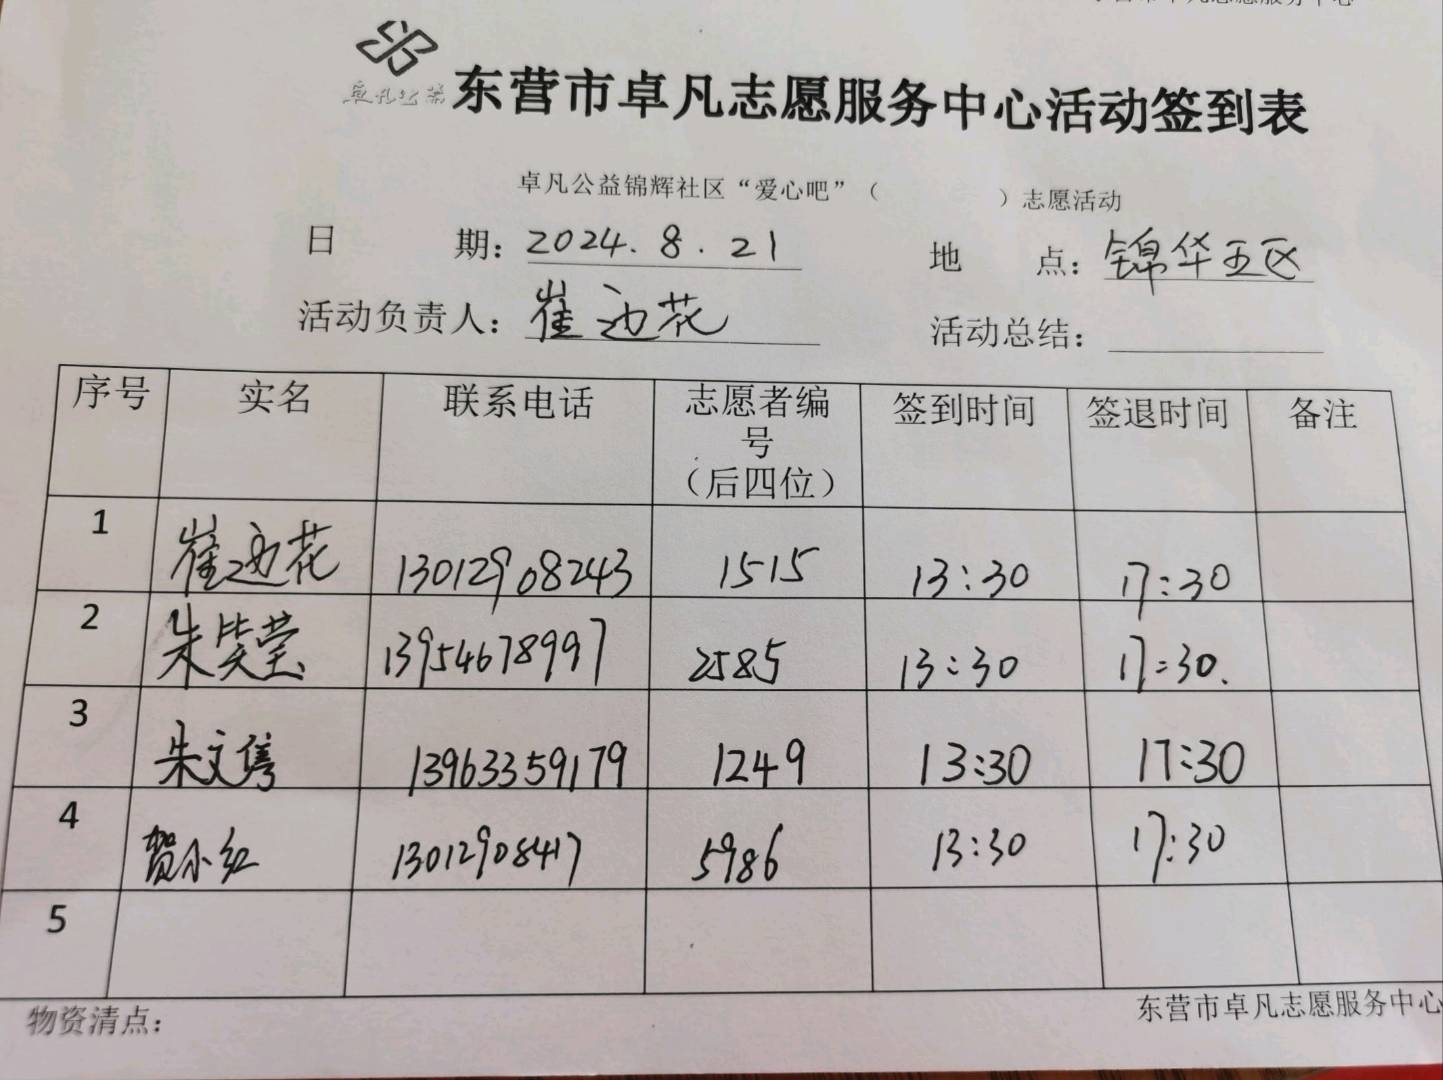 东营市卓凡志愿服务中心活动签到表
卓凡公益锦辉社区“爱心吧”（ ）志愿活动
日 期：2024.8.21 地 点：锦华五区
活动负责人：崔边花 活动总结：
序号 实名 联系电话 志愿者编号（后四位） 签到时间 签退时间 备注
1 崔边花 13012908243 1515 13:30 17:30
2 朱笑莹 13954678997 2585 13:30 17:30.
3 朱文隽 13963359179 1249 13:30 17:30
4 贺小红 13012908417 5986 13:30 17:30
5
物资清点：
东营市卓凡志愿服务中心